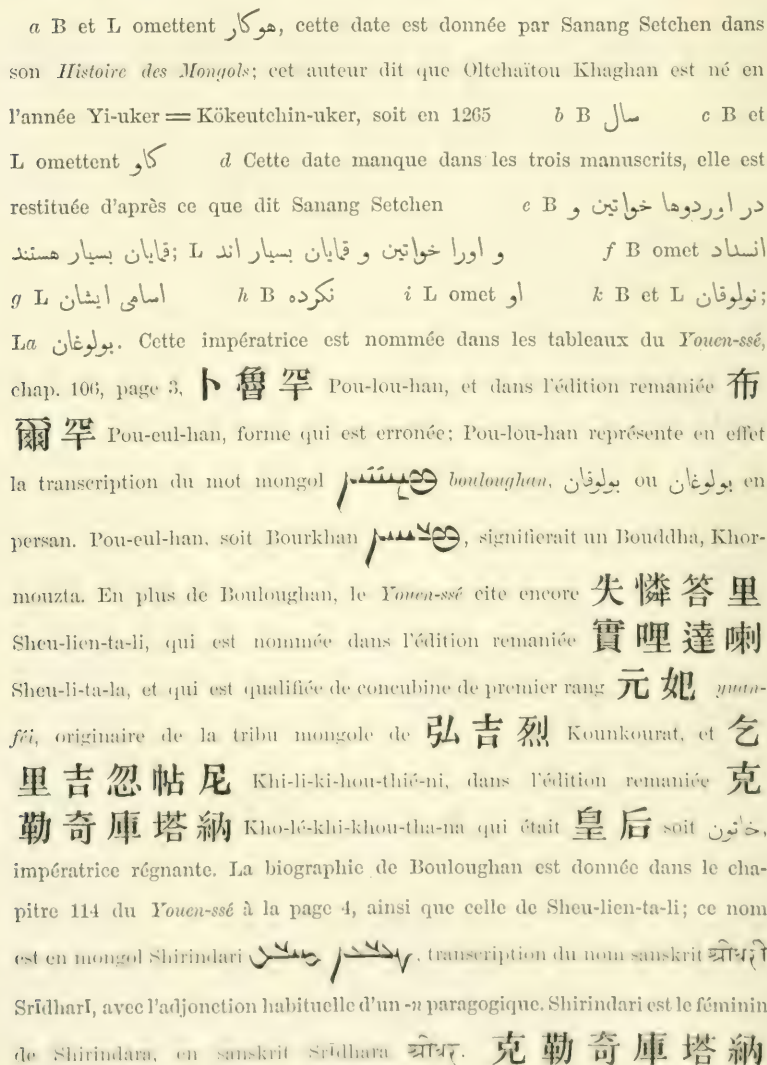 a B et L omettent هوكار, cette date est donnée par Sanang Setchen dans
son Histoire des Mongols; cet auteur dit que Oltchaïtou Khaghan est né en
l'année Yi-uker = Kökeutchin-uker, soit en 1265 b B سال c B et
L omettent كاو d Cette date manque dans les trois manuscrits, elle est
restituée d'après ce que dit Sanang Setchen e B در اوردوها خواتین و
قمایان بسیار هستند; L و اورا خواتین و قمایان بسیار اند f B omet انسداد
g L اسامی ایشان h B نکرده i L omet او k B et L نولوقان;
La بولوغان. Cette impératrice est nommée dans les tableaux du Youen-ssé,
chap. 106, page 3, 卜魯罕 Pou-lou-han, et dans l'édition remaniée 布
爾罕 Pou-eul-han, forme qui est erronée; Pou-lou-han représente en effet
la transcription du mot mongol bouloughan, بولوغان ou بولوقان en
persan. Pou-eul-han, soit Bourkhan, signifierait un Bouddha, Khor-
mouzta. En plus de Bouloughan, le Youen-ssé cite encore 失憐答里
Sheu-lien-ta-li, qui est nommée dans l'édition remaniée 實哩達喇
Sheu-li-ta-la, et qui est qualifiée de concubine de premier rang 元妃 yuan-
féi, originaire de la tribu mongole de 弘吉烈 Kounkourat, et 乞
里吉忽帖尼 Khi-li-ki-hou-thié-ni, dans l'édition remaniée 克
勒奇庫塔納 Kho-lé-khi-khou-tha-na qui était 皇后 soit خاتون,
impératrice régnante. La biographie de Bouloughan est donnée dans le cha-
pitre 114 du Youen-ssé à la page 4, ainsi que celle de Sheu-lien-ta-li; ce nom
est en mongol Shirindari, transcription du nom sanskrit श्रीधरी
Srīdharī, avec l'adjonction habituelle d'un -n paragogique. Shirindari est le féminin
de Shirindara, en sanskrit Srīdhara श्रीधर. 克勒奇庫塔納